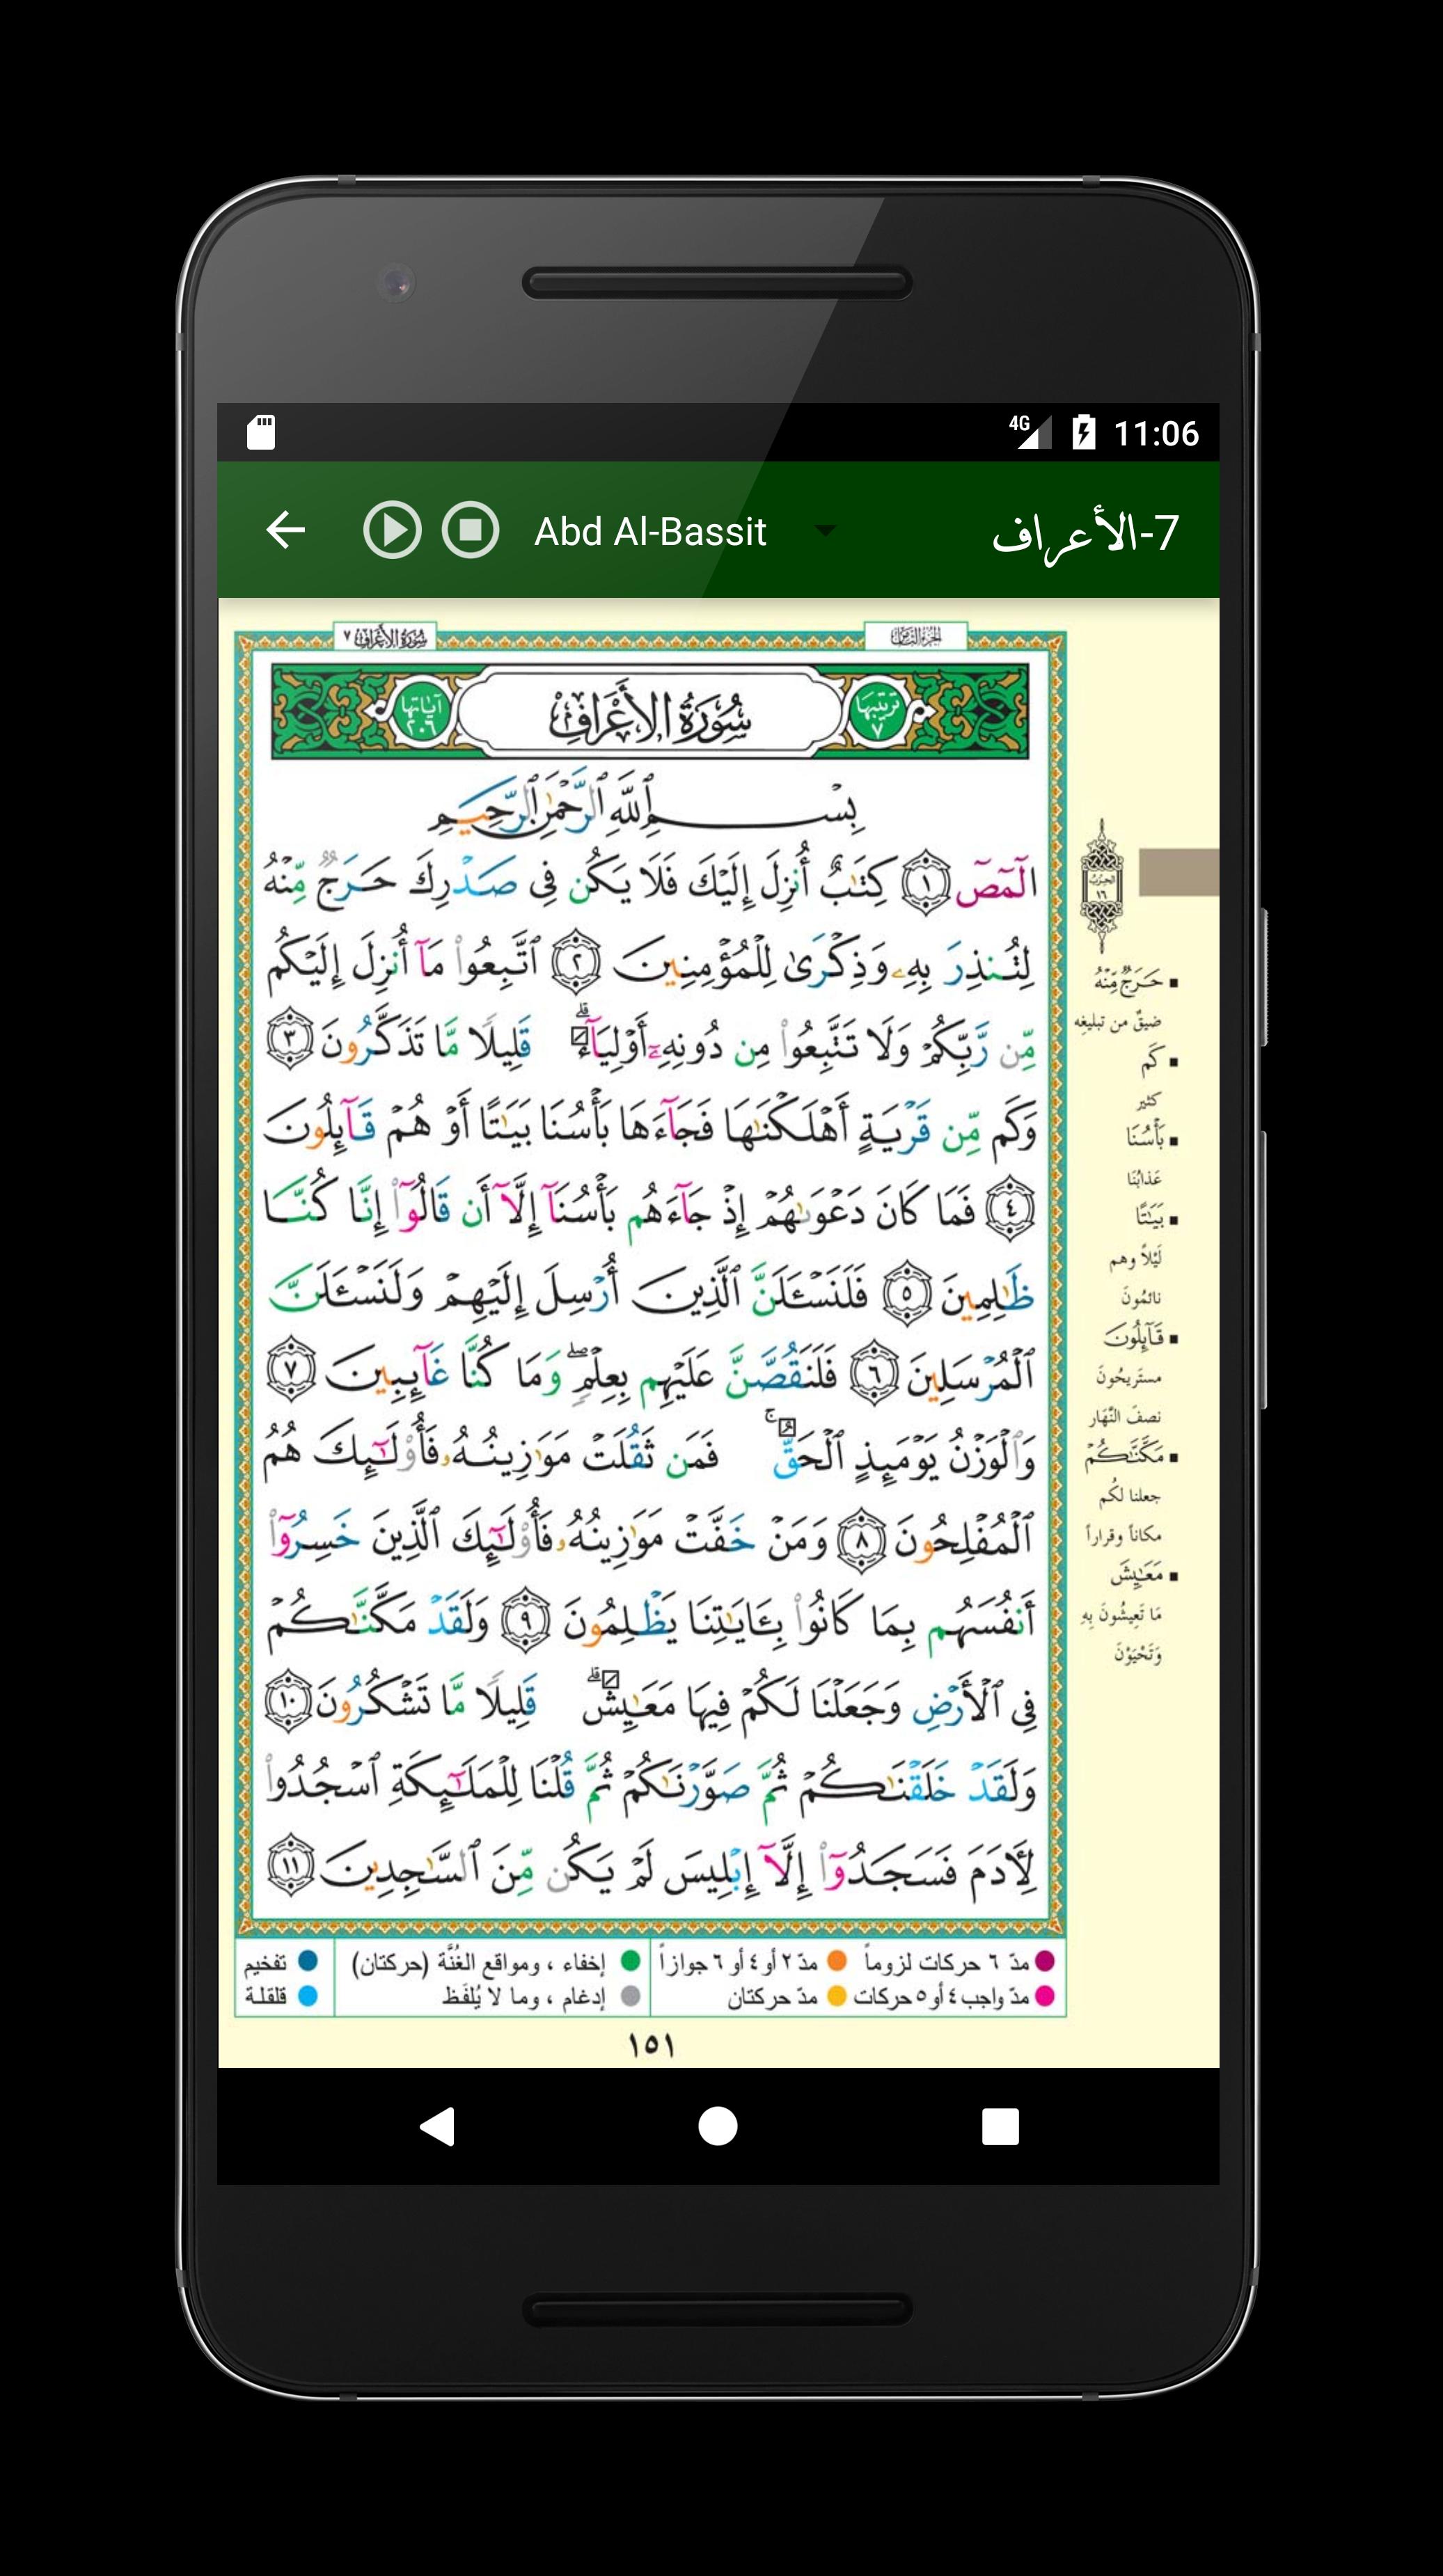 4G 11:06
Abd Al-Bassit
7-الأعراف
سُورَةُ الأَعْرَافِ ٧
الجزء الثامن
آيَاتُهَا ٢٠٦
سُورَةُ الأَعْرَافِ
تَرْتِيبُهَا ٧
بِسْمِ ٱللَّهِ ٱلرَّحْمَٰنِ ٱلرَّحِيمِ
الٓمٓصٓ ١ كِتَٰبٌ أُنزِلَ إِلَيْكَ فَلَا يَكُن فِى صَدْرِكَ حَرَجٌ مِّنْهُ
لِتُنذِرَ بِهِۦ وَذِكْرَىٰ لِلْمُؤْمِنِينَ ٢ ٱتَّبِعُوا۟ مَآ أُنزِلَ إِلَيْكُم
مِّن رَّبِّكُمْ وَلَا تَتَّبِعُوا۟ مِن دُونِهِۦٓ أَوْلِيَآءَ ۗ قَلِيلًا مَّا تَذَكَّرُونَ ٣
وَكَم مِّن قَرْيَةٍ أَهْلَكْنَٰهَا فَجَآءَهَا بَأْسُنَا بَيَٰتًا أَوْ هُمْ قَآئِلُونَ
٤ فَمَا كَانَ دَعْوَىٰهُمْ إِذْ جَآءَهُم بَأْسُنَآ إِلَّآ أَن قَالُوٓا۟ إِنَّا كُنَّا
ظَٰلِمِينَ ٥ فَلَنَسْـَٔلَنَّ ٱلَّذِينَ أُرْسِلَ إِلَيْهِمْ وَلَنَسْـَٔلَنَّ
ٱلْمُرْسَلِينَ ٦ فَلَنَقُصَّنَّ عَلَيْهِم بِعِلْمٍ ۖ وَمَا كُنَّا غَآئِبِينَ ٧
وَٱلْوَزْنُ يَوْمَئِذٍ ٱلْحَقُّ ۚ فَمَن ثَقُلَتْ مَوَٰزِينُهُۥ فَأُو۟لَٰٓئِكَ هُمُ
ٱلْمُفْلِحُونَ ٨ وَمَنْ خَفَّتْ مَوَٰزِينُهُۥ فَأُو۟لَٰٓئِكَ ٱلَّذِينَ خَسِرُوٓا۟
أَنفُسَهُم بِمَا كَانُوا۟ بِـَٔايَٰتِنَا يَظْلِمُونَ ٩ وَلَقَدْ مَكَّنَّٰكُمْ
فِى ٱلْأَرْضِ وَجَعَلْنَا لَكُمْ فِيهَا مَعَٰيِشَ ۗ قَلِيلًا مَّا تَشْكُرُونَ ١٠
وَلَقَدْ خَلَقْنَٰكُمْ ثُمَّ صَوَّرْنَٰكُمْ ثُمَّ قُلْنَا لِلْمَلَٰٓئِكَةِ ٱسْجُدُوا۟
لِـَٔادَمَ فَسَجَدُوٓا۟ إِلَّآ إِبْلِيسَ لَمْ يَكُن مِّنَ ٱلسَّٰجِدِينَ ١١
الحزب ١٦
حَرَجٌ مِّنْهُ
ضيقٌ من تبليغه
كَم
كثير
بَأْسُنَا
عَذابُنَا
بَيَٰتًا
لَيْلاً وهم
نائمُونَ
قَآئِلُونَ
مستَريحُونَ
نصفَ النَّهَار
مَكَّنَّٰكُمْ
جعلنا لكُم
مكاناً وقراراً
مَعَٰيِشَ
مَا تَعِيشُونَ بِهِ
وَتَحْيَوْنَ
مدّ ٦ حركات لزوماً مدّ ٢ أو ٤ أو ٦ جوازاً إخفاء ، ومواقع الغُنَّة (حركتان) تفخيم
مدّ واجب ٤ أو ٥ حركات مدّ حركتان إدغام ، وما لا يُلفَظ قلقلة
١٥١